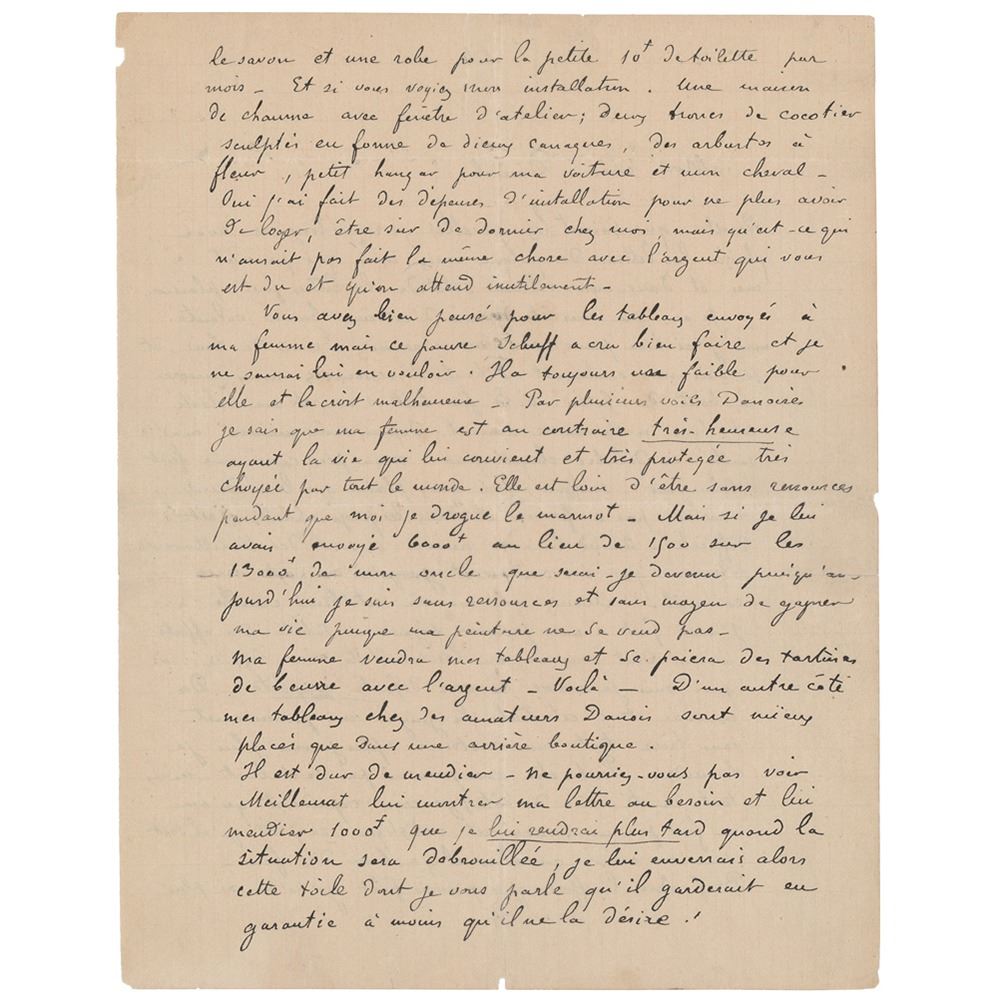 le savon et une robe pour la petite 10f de toilette par
mois – Et si vous voyiez mon installation. Une maison
de chaume avec fenêtre d'atelier; deux troncs de cocotier
sculptés en forme de dieux canaques, des arbustes à
fleur, petit hangar pour ma voiture et mon cheval –
Oui j'ai fait des dépenses d'installation pour ne plus avoir
de loger, être sûr de dormir chez moi, mais qu'est-ce qui
n'aurait pas fait la même chose avec l'argent qui vous
est du et qu'on attend inutilement –
Vous avez bien pensé pour les tableaux envoyés à
ma femme mais ce pauvre Schuff a cru bien faire et je
ne saurai lui en vouloir. Il a toujours un faible pour
elle et la croit malheureuse – Par plusieurs voies Danoises
je sais que ma femme est au contraire très-heureuse
ayant la vie qui lui convient et très protegée très
choyée par tout le monde. Elle est loin d'être sans ressources
pendant que moi je drogue le marmot – Mais si je lui
avais envoyé 6000f au lieu de 1500 sur les
13000f de mon oncle que serai-je devenu puisqu'au-
jourd'hui je suis sans ressources et sans moyen de gagner
ma vie puisque ma peinture ne se vend pas –
Ma femme vendra mes tableaux et se paiera des tartines
de beurre avec l'argent – Voilà – D'un autre côté
mes tableaux chez des amateurs Danois sont mieux
placés que dans une arrière boutique.
Il est dur de mendier – Ne pourriez-vous pas voir
Meilheurat lui montrer ma lettre au besoin et lui
mendier 1000f que je lui rendrai plus tard quand la
situation sera débrouillée, je lui enverrais alors
cette toile dont je vous parle qu'il garderait en
garantie à moins qu'il ne la désire !